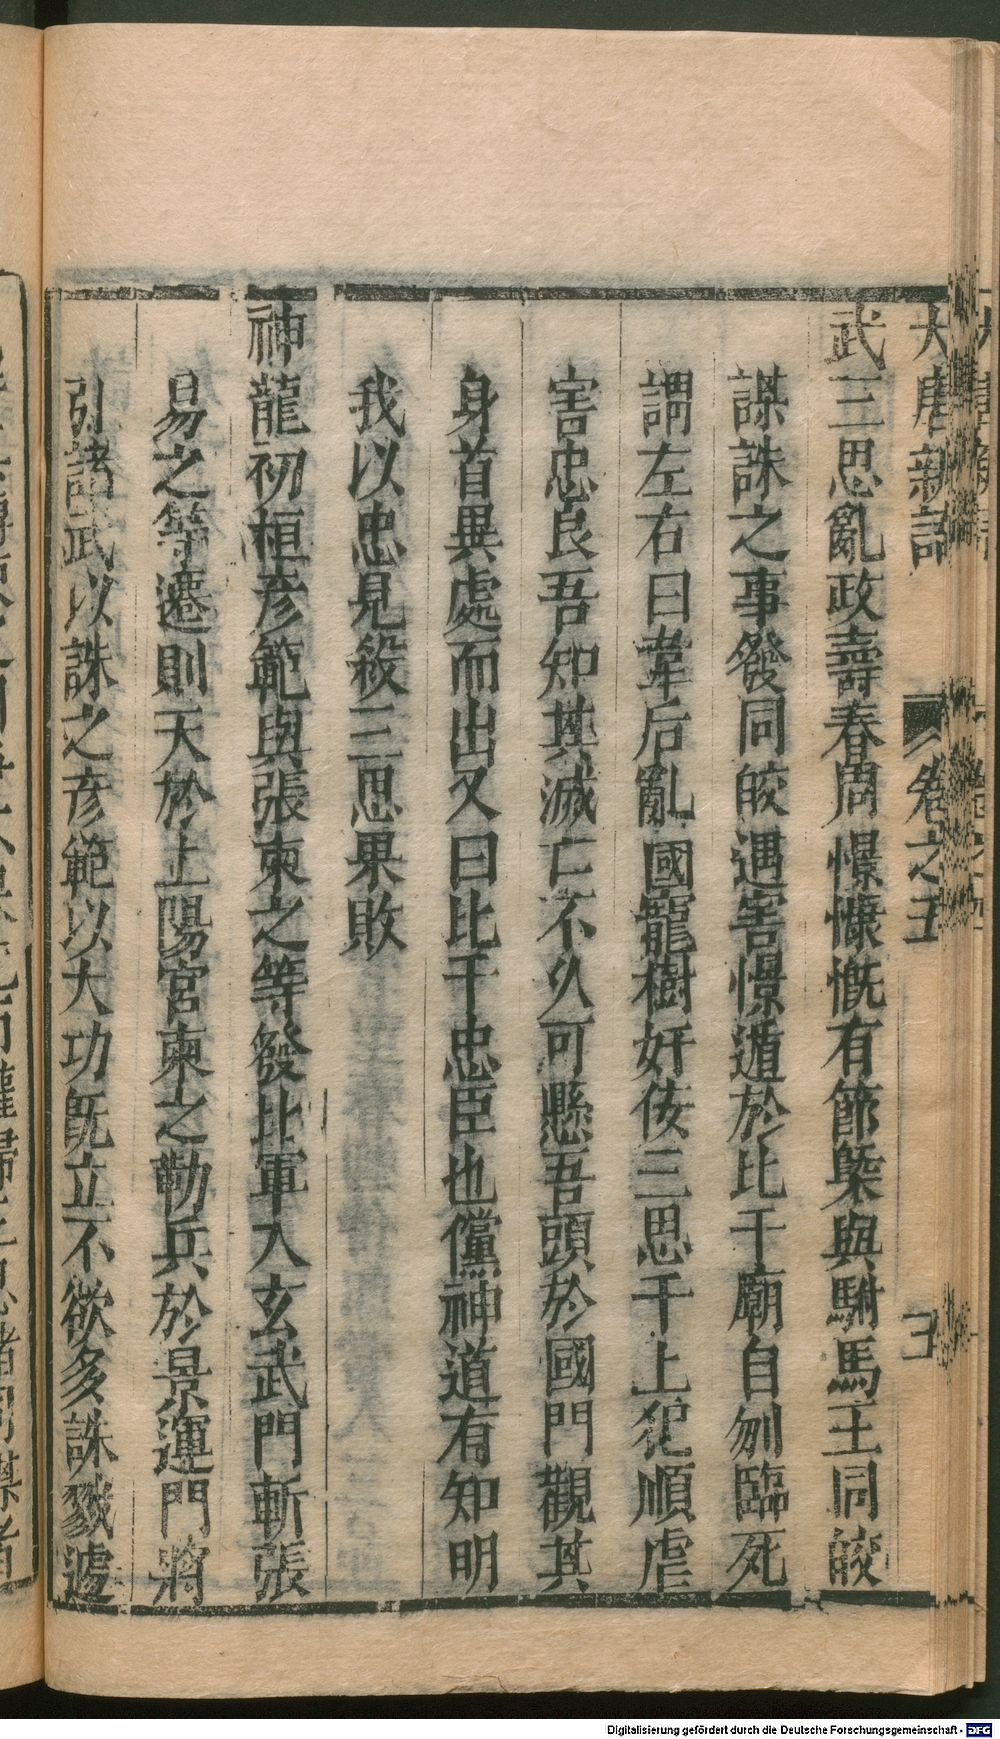 大唐新語 卷之五 五
武三思亂政壽春周憬慷慨有節槩與駙馬王同皎
謀誅之事發同皎遇害憬遁於比干廟自刎臨死
謂左右曰韋后亂國寵樹奸佞三思干上犯順虐
害忠良吾知其滅亡不乆可懸吾頭於國門觀其
身首異處而出又曰比干忠臣也儻神道有知明
我以忠見殺三思果敗
神龍初桓彦範與張柬之等發北軍入玄武門斬張
易之等遷則天於上陽宮柬之勒兵於景運門將
引諸武以誅之彦範以大功旣立不欲多誅戮遽
Digitalisierung gefördert durch die Deutsche Forschungsgemeinschaft - DFG